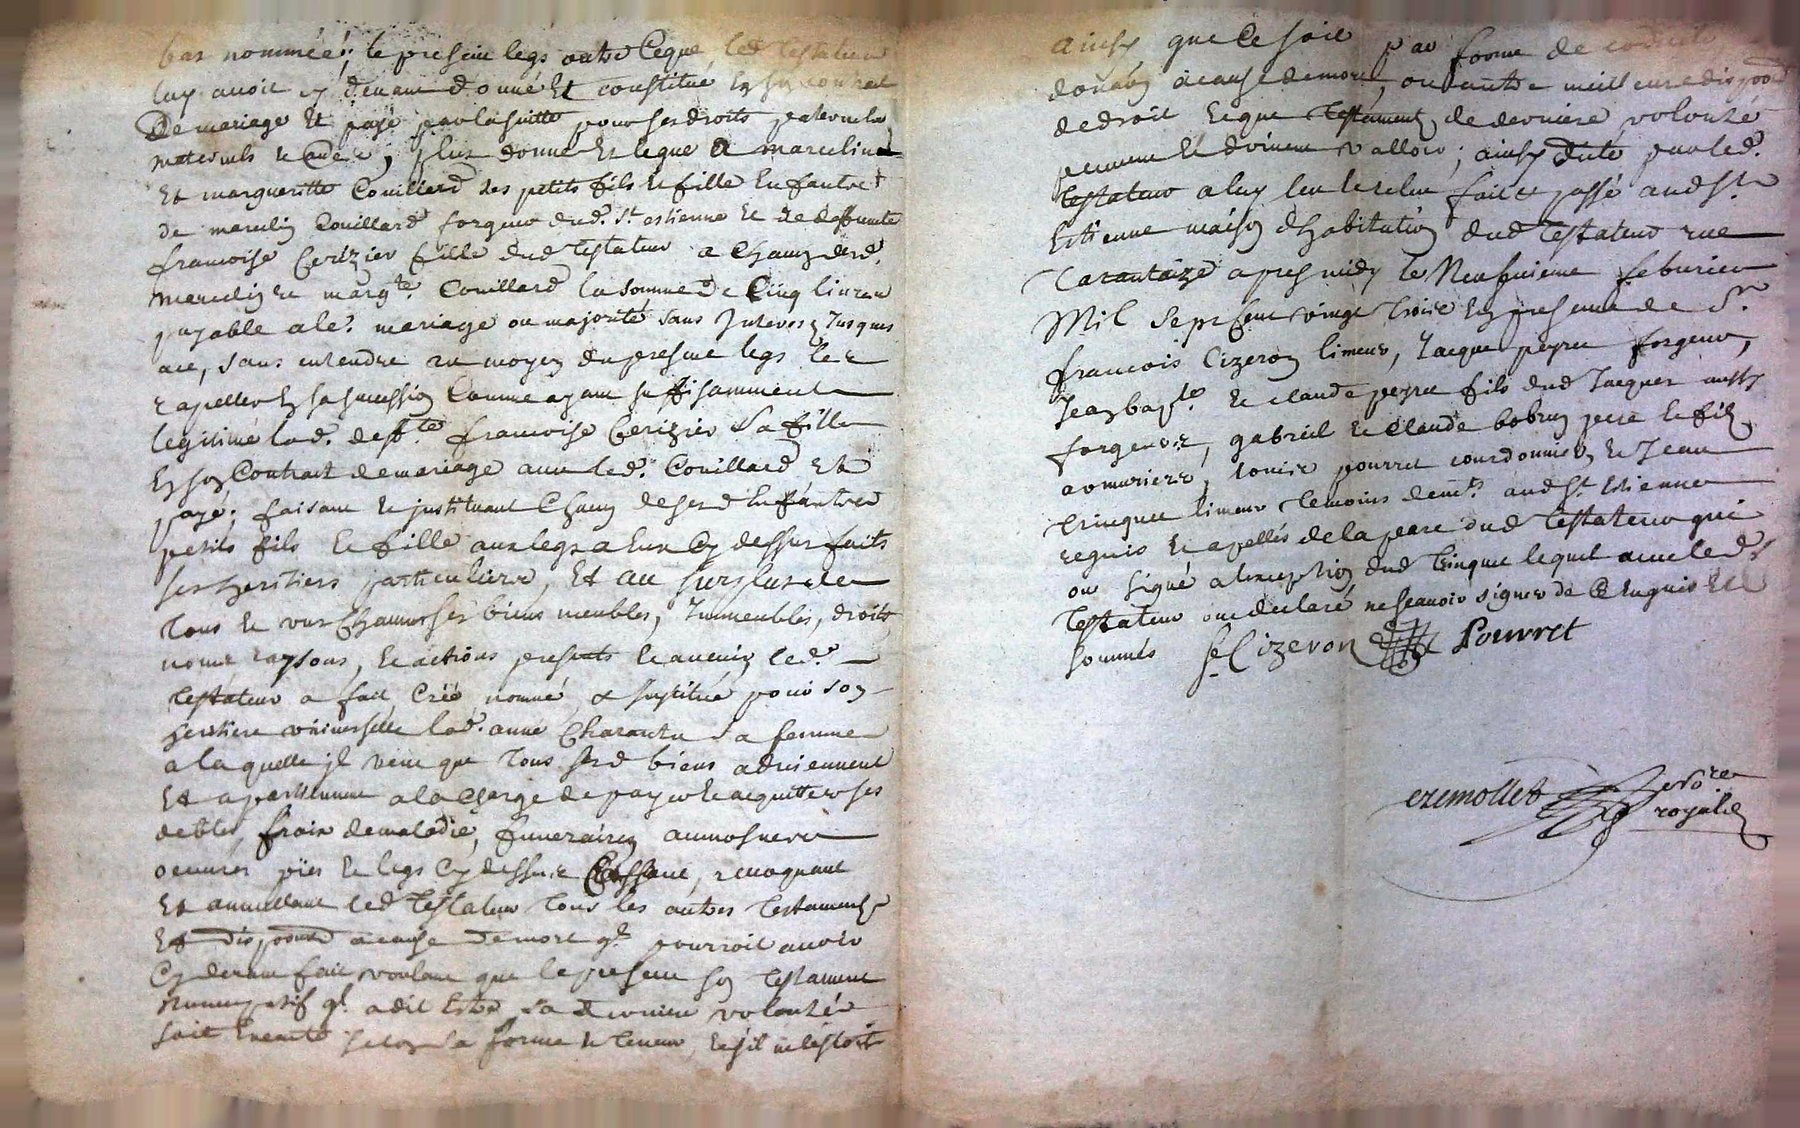 bas nommée; le present legs outre ce que led testateur
luy avoit cy devant donné et constitué en son contrat
de mariage et payé par la suitte pour ses droits paternels
maternels et autres, plus donne et legue a marcelin
et margueritte Couillard ses petits fils et fille enfants
de marcelin Couillard forgeur dud. St estienne et de deffunte
francoise Cerizier fille dud testateur a chacun desd.
marcelin et margte. Couillard la somme de cinq livres
payable a le. mariage ou majorité sans interest jusques
ace, sans entendre au moyen du present legs les
rapeller en sa succession comme ayant suffisamment
legitimé lad. deffte francoise Cerizier sa fille
en son contrat de mariage avec led. Couillard et
payé; faisant et instituant chacun de sesd enfants
petits fils et fille aux legs a eux cy dessus faits
ses heritiers particuliers, et au surplus de
tous et uns chacuns ses biens meubles, immeubles, droits
noms raysons, et actions presents et avenir led.
testateur a fait, créé nommé, & institué pour son
heritiere universelle lad. anne Charantu sa femme
a la quelle il veut que tous sesd biens adviennent
et apartiennent a la charge de payer et acquitter ses
debtes, frais de maladie, funeraires aumosnes
oeuvres pies et legs cy dessus Cassant, revoquant
et annullant led testateur tous les autres testaments
et disposond a cause de mort ql. pourroit avoir
cy devant fait voulant que le present son testament
nuncupatif ql. a dit estre sa derniere volonté
soit executé selon sa forme et teneur, et s'il ne l'estoit
ainsy que ce soit par forme de codicil
donaon a cause de mort, ou autre meilleure disposon
de droit et que testaments de derniere volonté
peuvent et doivent valloir; ainsy dicté par led.
testateur a luy leu et releu fait et passé aud St
Estienne maison d'habitation dud testateur rue
Tarantaize apres midy le neufvieme febvrier
Mil sept cent vingt trois en presence de Sr.
francois Cizeron limeur, Jacque peyre forgeur,
Jean bapte. et claude peyre fils dud Jacques aussy
forgeurs, gabriel et claude bobrun pere et fils
armuriers, louis pourret courdonnier et Jean
trinque limeur temoins demts. aud St. Estienne
requis et apellés de la part dud testateur qui
ont signé a l'exception dud trinque lequel avec led
testateur ont declaré ne scavoir signer de ce enquis et
sommés f Cizeron Pourret
ezemollet no.re
royal